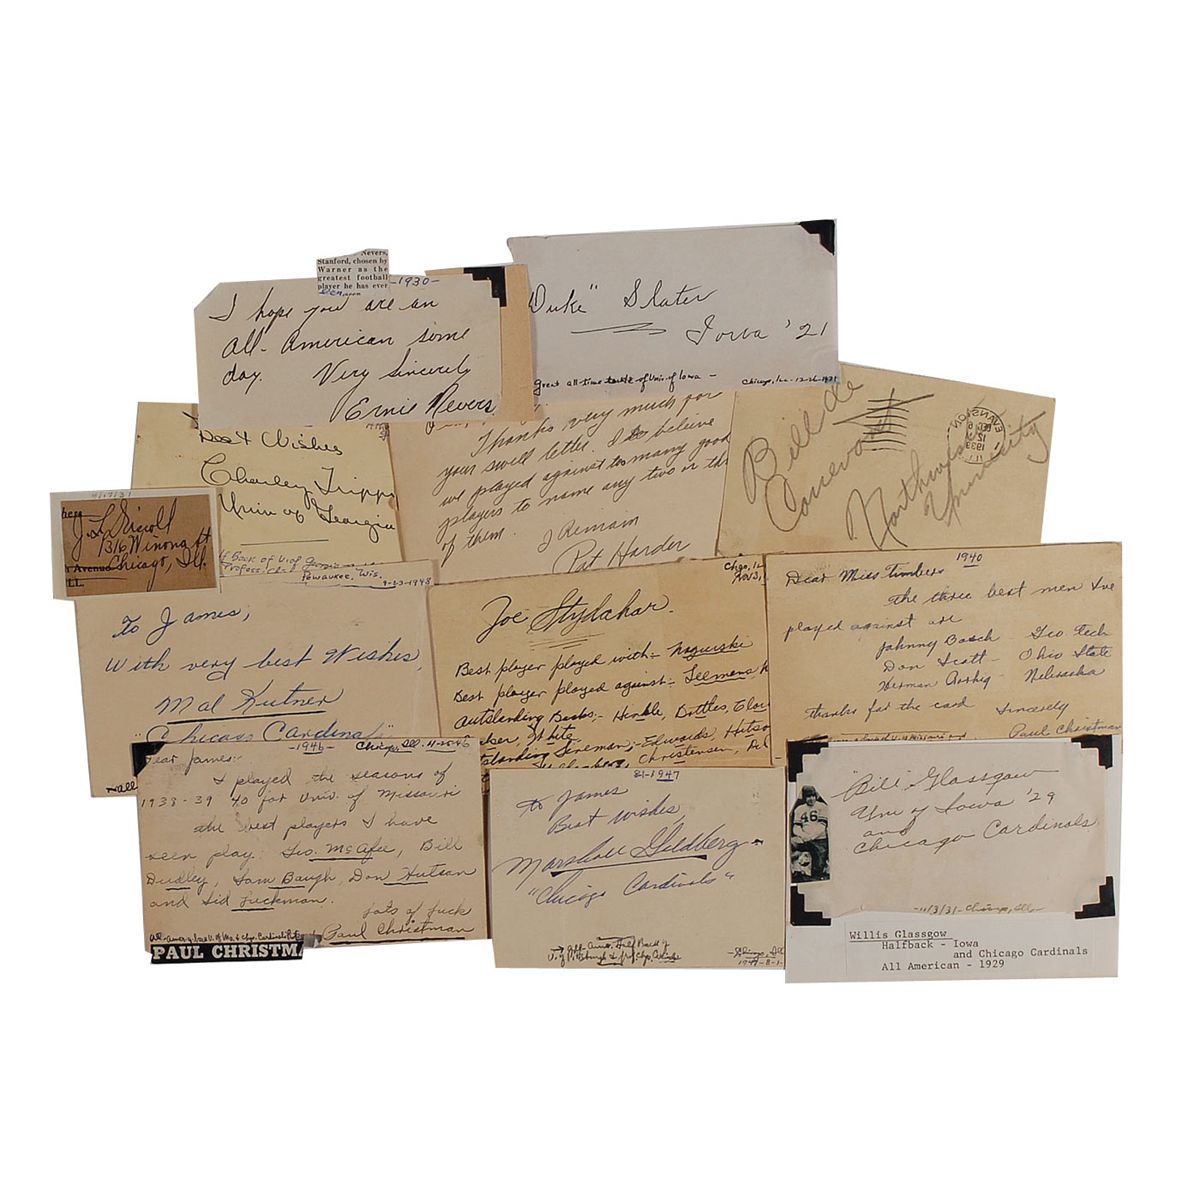 Nevers,
Stanford, chosen by
Warner as the
greatest football
player he has ever
seen
-1930-
I hope you are an
all-American some
day. Very Sincerely
Ernie Nevers
Duke" Slater
Iowa '21
great all-time tackle of Univ. of Iowa -
Chicago,
Best Wishes
Charley Trippi
Univ of Georgia
Back of U. of Georgia
Pewaukee, Wis.
9-23-1948
Thanks very much for
your swell letter. I believe
we played against to many good
players to name any two or th
of them. I Remain
Pat Harder
Bill de
Correvont
Northwestern
University
EVANSTON
DEC
12
ILL
J. L. Driscoll
1316 Winona St
s Avenue Chicago, Ill.
ILL.
To James,
With very best Wishes,
Mal Kutner
"Chicago Cardinals"
Joe Stydahar
Best player played with - Nagurski
Best player played against -
Outstanding Backs - Hinkle, Battles,
White
Linemen; - Edwards, Hutson
Christensen,
1940
Dear Miss Timbers
The three best men I've
played against are
Johnny Bosch - Geo. Tech
Don Scott - Ohio State
Herman Rohrig - Nebraska
Thanks for the card
Sincerely
Paul Christman
-1946-
Chicago, Ill. 11-25-46
Dear James:-
I played the seasons of
1938-39 40 for Univ. of Missouri
The best players I have
seen play: Geo. McAfee, Bill
Dudley, Sam Baugh, Don Hutson
and Sid Luckman.
Lots of luck
Paul Christman
PAUL CHRISTM
81-1947
To James
Best Wishes,
Marshall Goldberg
"Chicago Cardinals"
All-Amer. Half Back of
U. of Pittsburgh &
"Bill" Glassgow
Univ of Iowa '29
and
Chicago Cardinals
46
11/3/31 - Chicago, Ill.
Willis Glassgow
Halfback - Iowa
and Chicago Cardinals
All American - 1929